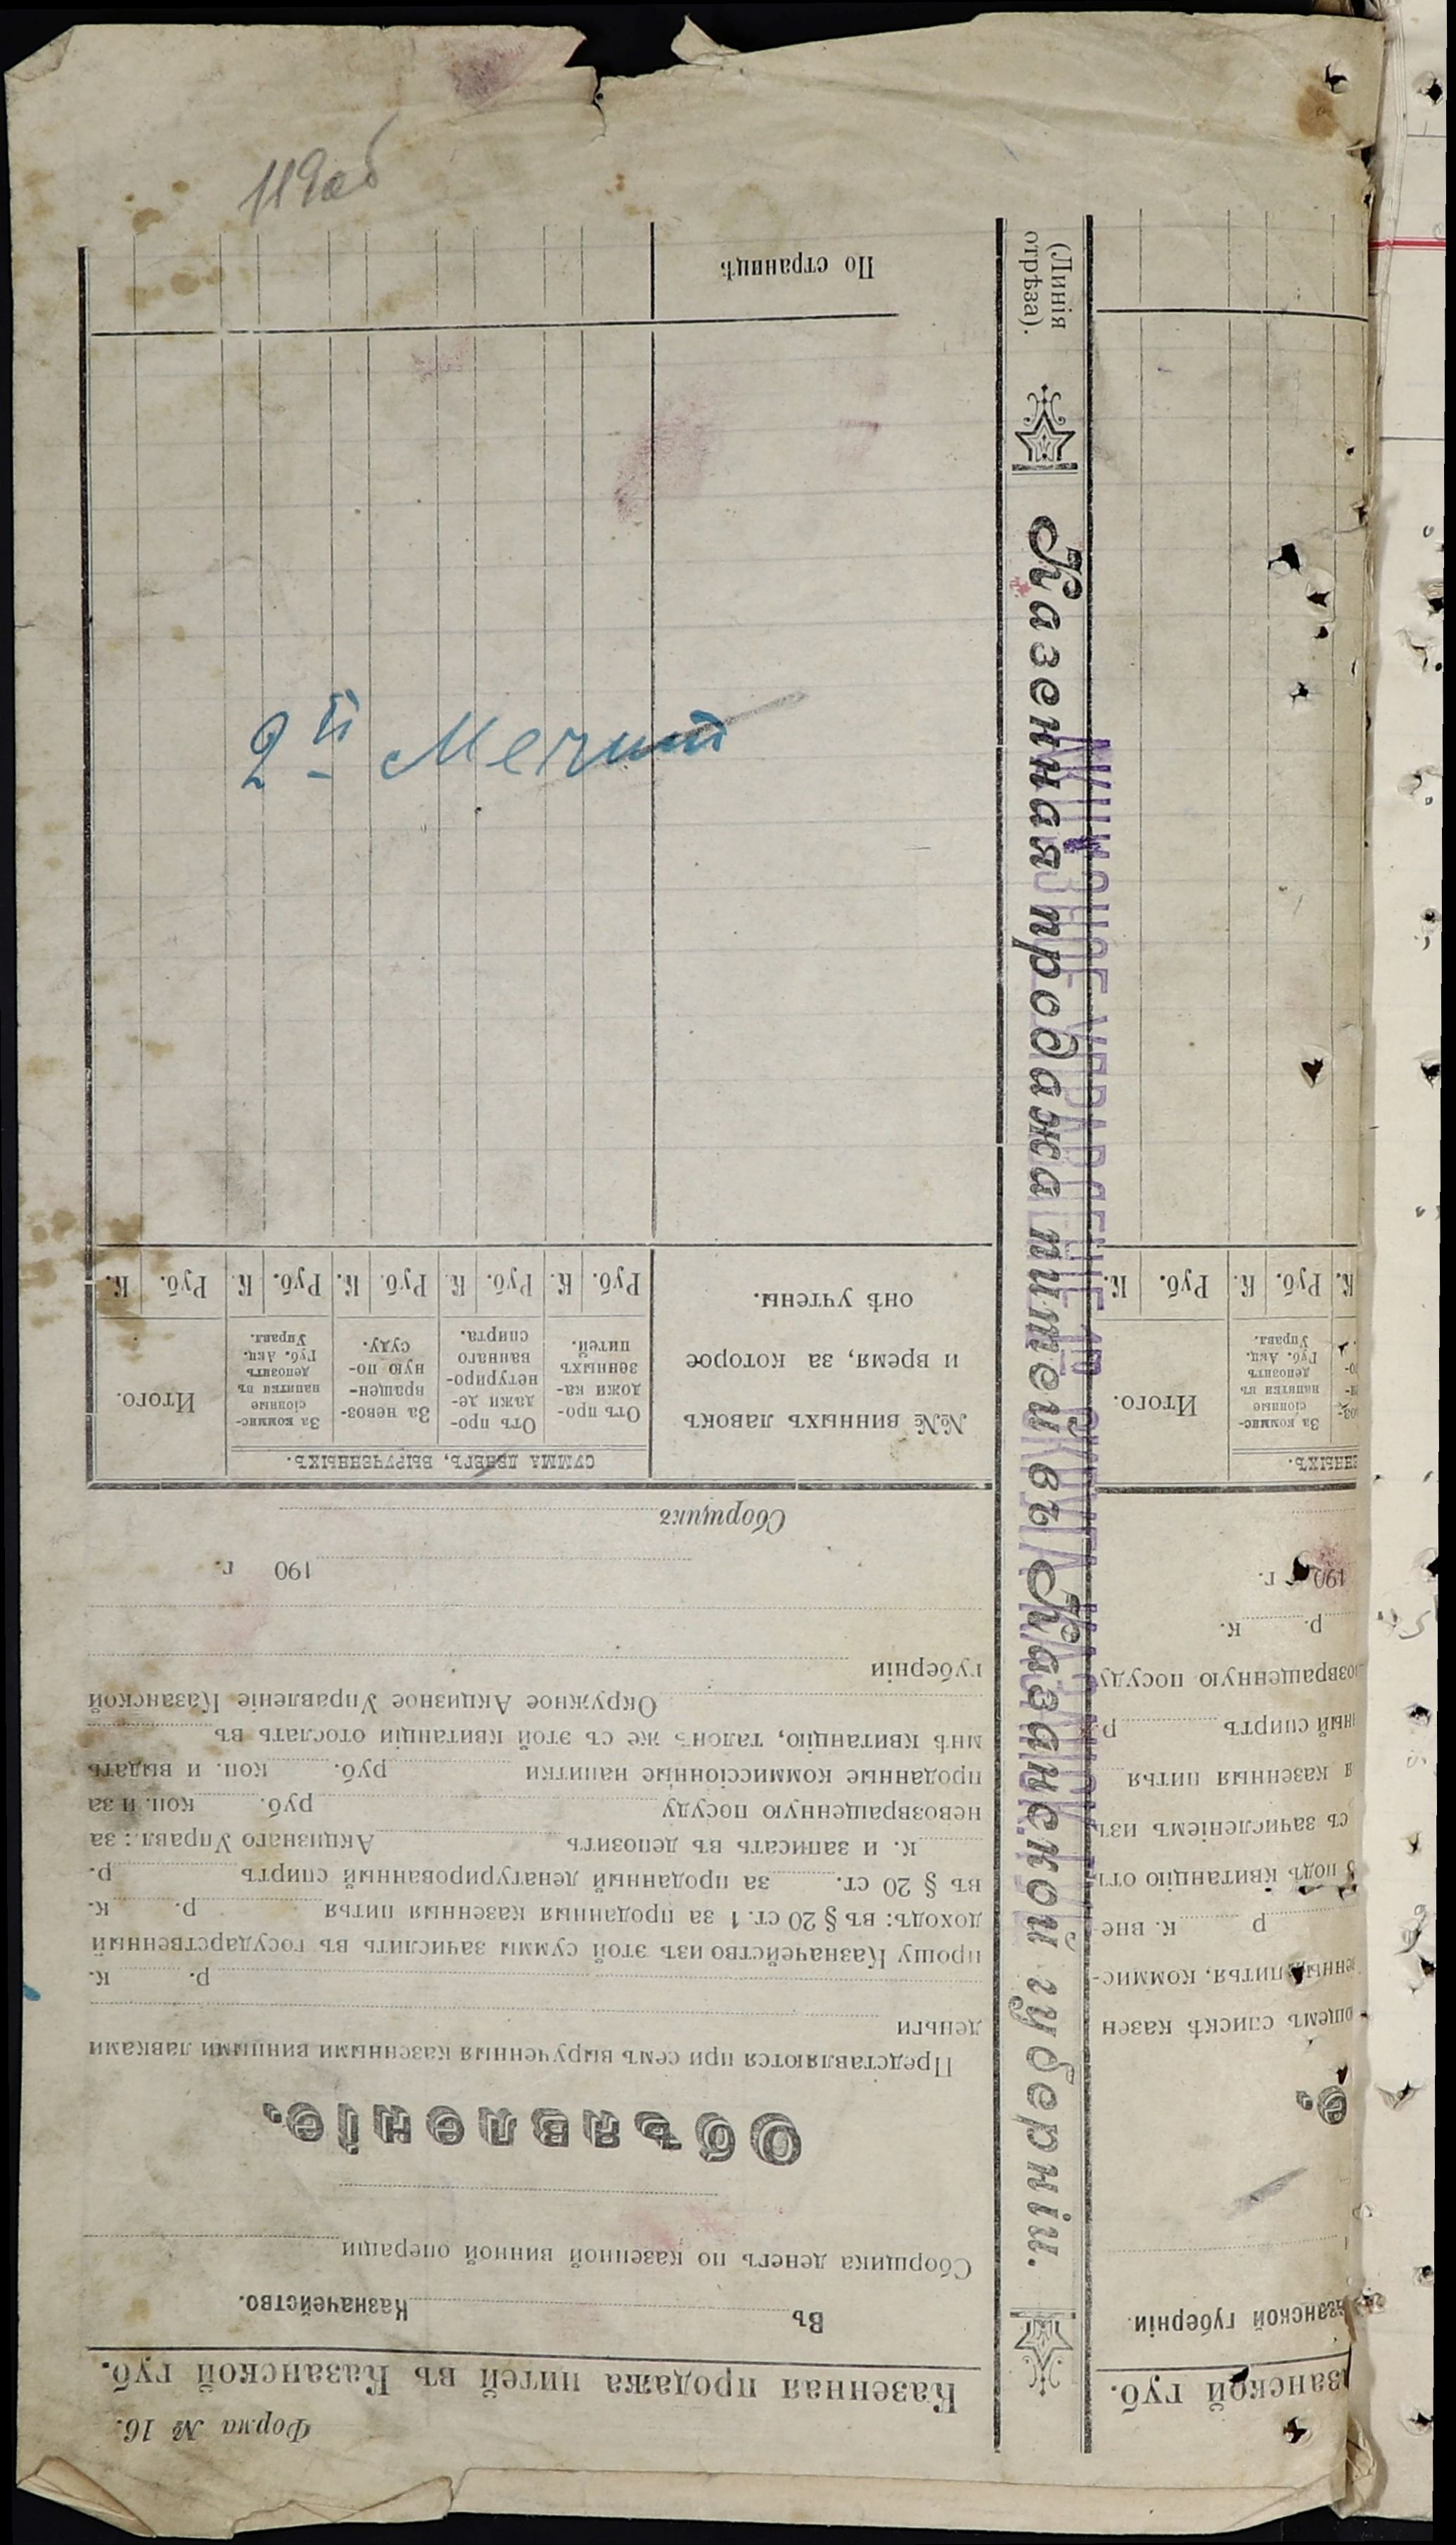 119об
2й Мечит
Форма № 16.
Казенная продажа питей въ Казанской губ.
Въ Казначейство.
Сборщика денегъ по казенной винной операціи
Объявленіе.
Представляются при семъ вырученныя казенными винными лавками
деньги
р. к.
прошу Казначейство изъ этой суммы зачислить въ государственный
доходъ: въ § 20 ст. 1 за проданныя казенныя питья р. к.
въ § 20 ст. за проданный денатурированный спиртъ р.
к. и записать въ депозитъ Акцизнаго Управл.: за
невозвращенную посуду руб. коп. и за
проданные коммиссіонные напитки руб. коп. и выдать
мнѣ квитанцію, талонъ же съ этой квитанціи отослать въ
Окружное Акцизное Управленіе Казанской
губерніи
190 г.
Сборщикъ
№№ винныхъ лавокъ
и время, за которое
онѣ учтены.
СУММА ДЕНЕГЪ, ВЫРУЧЕННЫХЪ.
Отъ про-
дажи ка-
зенныхъ
питей.
Отъ про-
дажи де-
нетуриро-
ваннаго
спирта.
За невоз-
вращен-
ную по-
суду.
За коммис-
сіонные
напитки въ
депозитъ
Губ. Акц.
Управл.
Итого.
Руб. К. Руб. К. Руб. К. Руб. К. Руб. К.
По страницѣ
(Линія
отрѣза).
Казенная продажа питей въ Казанской губерніи.
занской губ.
занской губерніи.
е.
ющемъ спискѣ казен
питья, коммис-
р к. вне-
подъ квитанцію отъ
съ зачисленіемъ изъ
я казенныя питья
ный спиртъ р
возвращенную посуду
р. к.
190 г.
ЕННЫХЪ.
За коммис-
сіонные
напитки въ
депозитъ
Губ. Акц.
Управл.
Итого.
К. Руб. К. Руб. К.